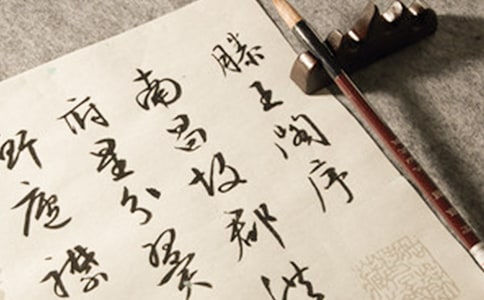 滕王阁序
南昌故郡洪
府星分翼
衡庐襟